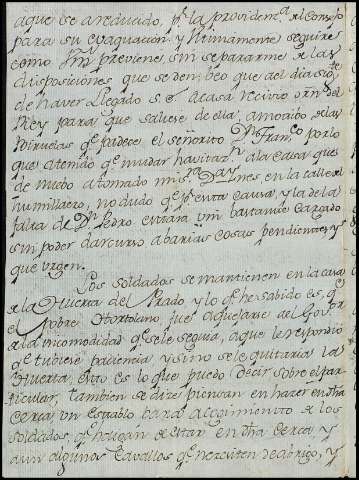 aque se a reducido, pr. la providenca. del Consejo
para su evaquacion, y Ultimamente seguire
como Vm. previene, sin separarme de las
disposiciones que se den, beo que al dia sigte.
de haver llegado S. E. a casa recivio orn. del
Rey para que saliese de ella, a motivo de las
Virruelas qe. padece el señorito Dn. Franco. por lo
que atendo. qe. mudar havitazn. a la casa que
de nuebo a tomado mi sra. Da. Ynes en la calle del
humilladero, no dudo qe. pr. esta causa, y la de la
falta de Dn. Pedro estara Vm. bastante cargado
sin poder dar curso a barias cosas pendientes y
que urgen.
Los soldados se mantienen en la casa
de la Huerta del Prado, y lo qe. he sabido es, qe.
el pobre Hortolano fue a quejarse al Goverr.
de la incomodidad qe. se le seguia, a que le respondio
qe. tubiese paciencia y sino se le quitaria la
Huerta, esto es lo que puedo decir sobre el par-
ticular, tambien se dize piensan en hazer en dha
cerca, un establo para acogimiento de los
soldados, qe. haigan de estar en dha cerca, y
aun algunos cavallos qe. necesiten de abrigo, y